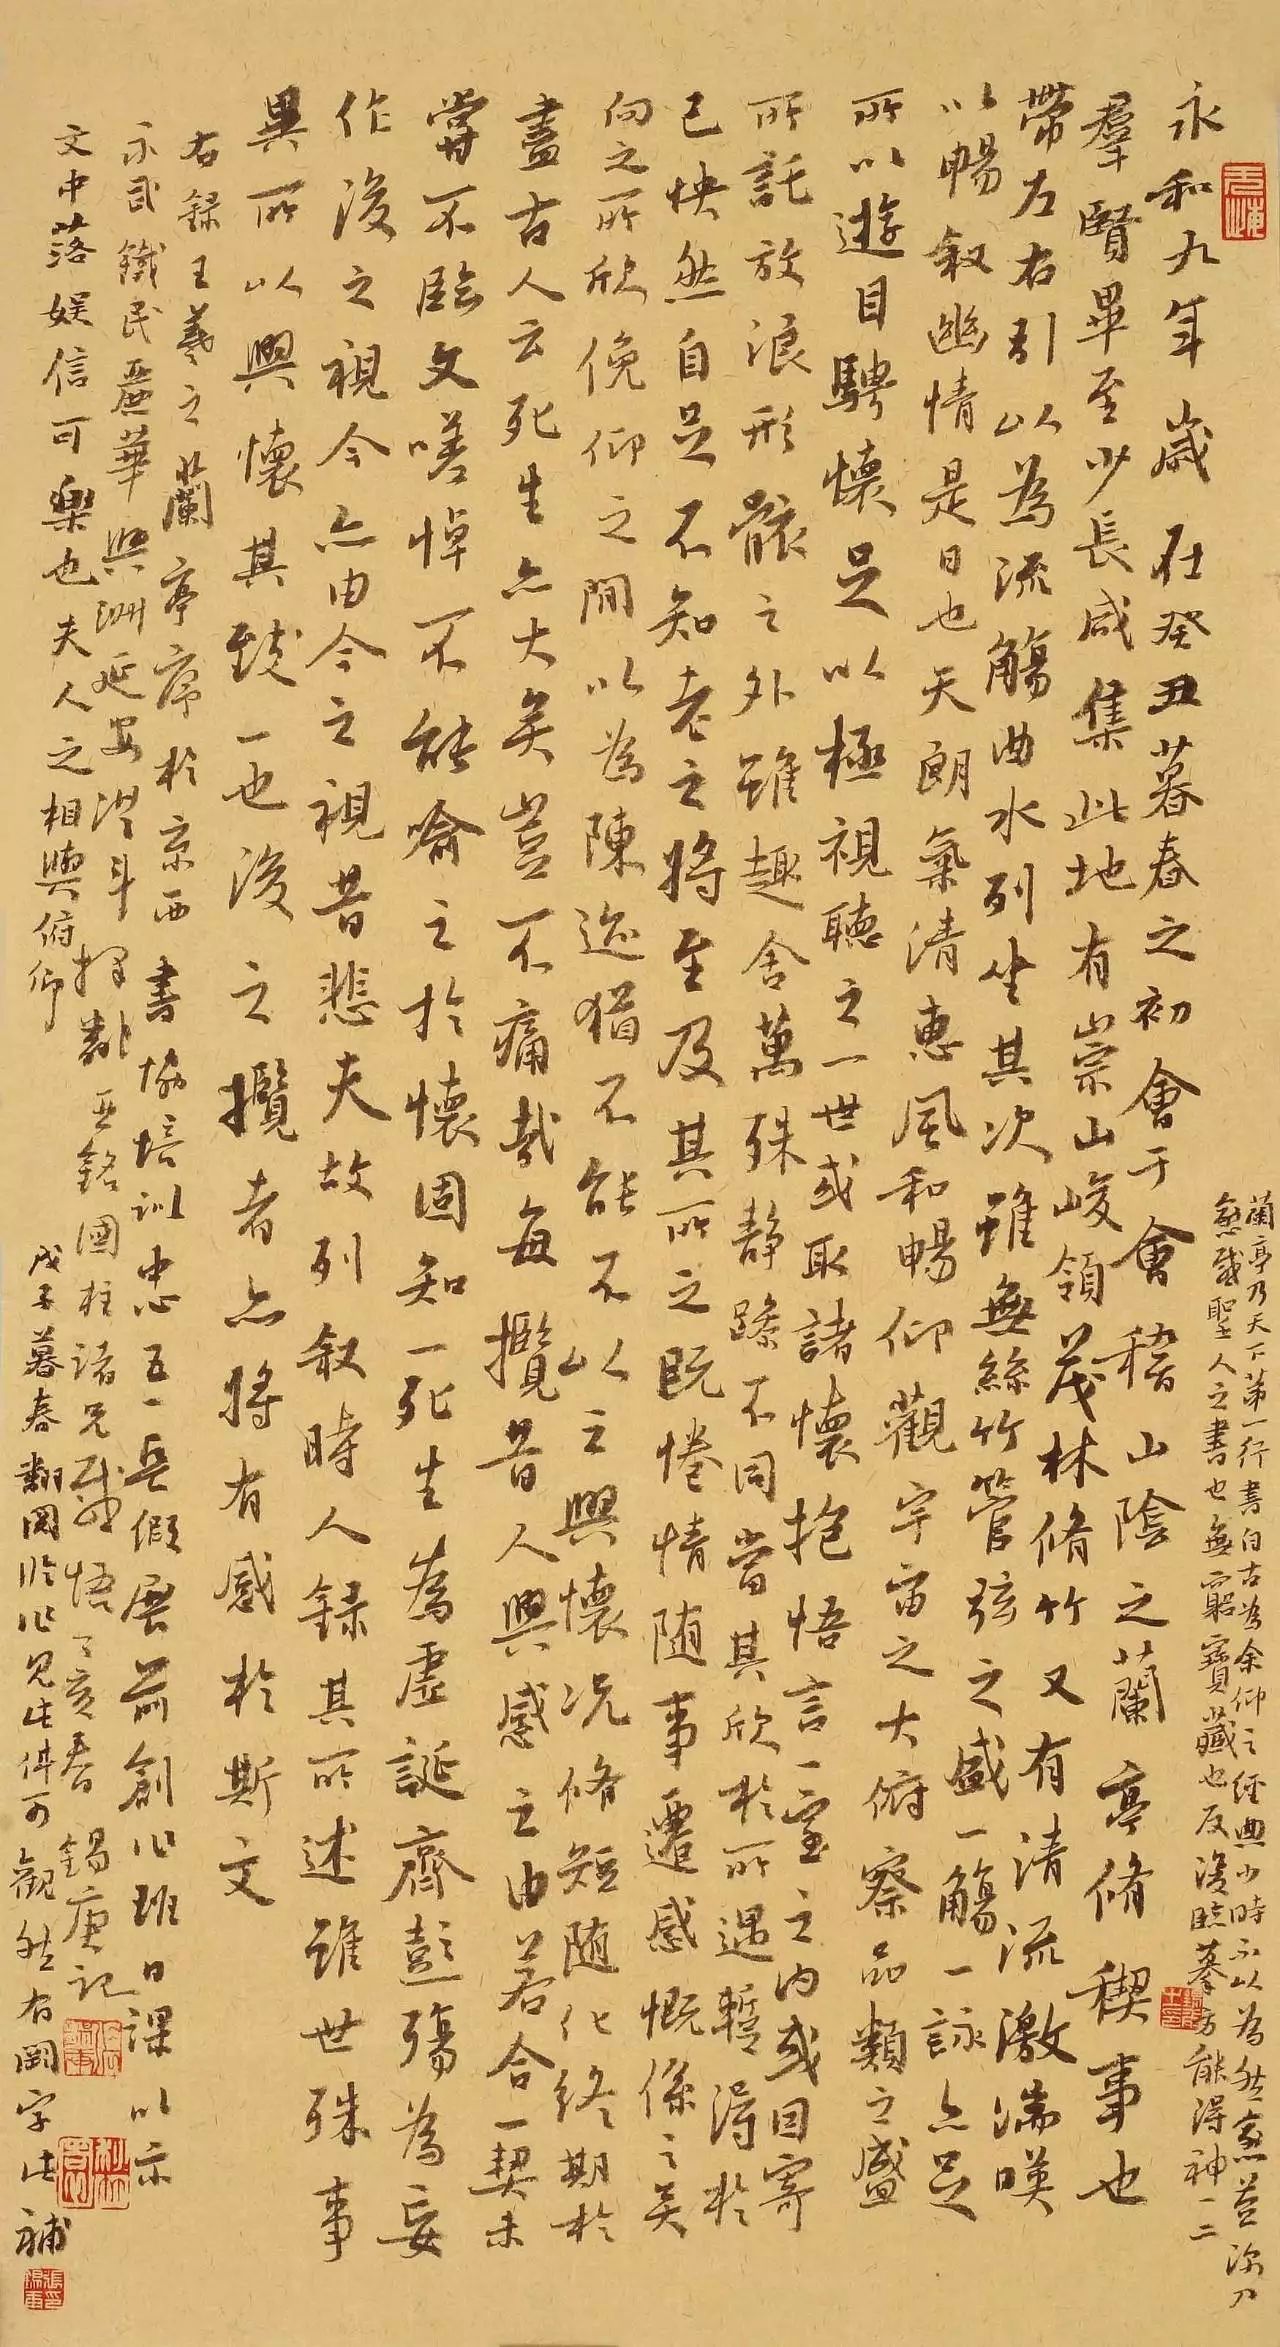 永和九年歲在癸丑暮春之初會于會稽山陰之蘭亭脩稧事也
羣賢畢至少長咸集此地有崇山峻領茂林脩竹又有清流激湍暎
帶左右引以為流觴曲水列坐其次雖無絲竹管弦之盛一觴一詠亦足
以暢叙幽情是日也天朗氣清惠風和暢仰觀宇宙之大俯察品類之盛
所以遊目騁懷足以極視聽之一世或取諸懷抱悟言一室之內或因寄
所託放浪形骸之外雖趣舍萬殊静躁不同當其欣於所遇暫得於
己怏然自足不知老之將至及其所之既惓情随事遷感慨係之矣
向之所欣俛仰之閒以為陳迹猶不能不以之興懷况脩短随化終期於
盡古人云死生亦大矣豈不痛哉每攬昔人興感之由若合一契未
甞不臨文嗟悼不能喻之於懷固知一死生為虛誕齊彭殤為妄
作後之視今亦由今之視昔悲夫故列叙時人錄其所述雖世殊事
異所以興懷其致一也後之攬者亦將有感於斯文
右録王羲之蘭亭序於京西書協培訓忠五一長假展前創作班日課以示
示
鐵民
華興洲延安
亞銘國柱諸兄
悟丁亥春錫庚記
文中落娱信可樂也夫人之相與俯仰
戊子暮春
觀然有闕字此補
蘭亭乃天下第一行書自古為余仰之經典少時不以為然
聖人之書也無窮寶藏也反復臨摹方能得神一二